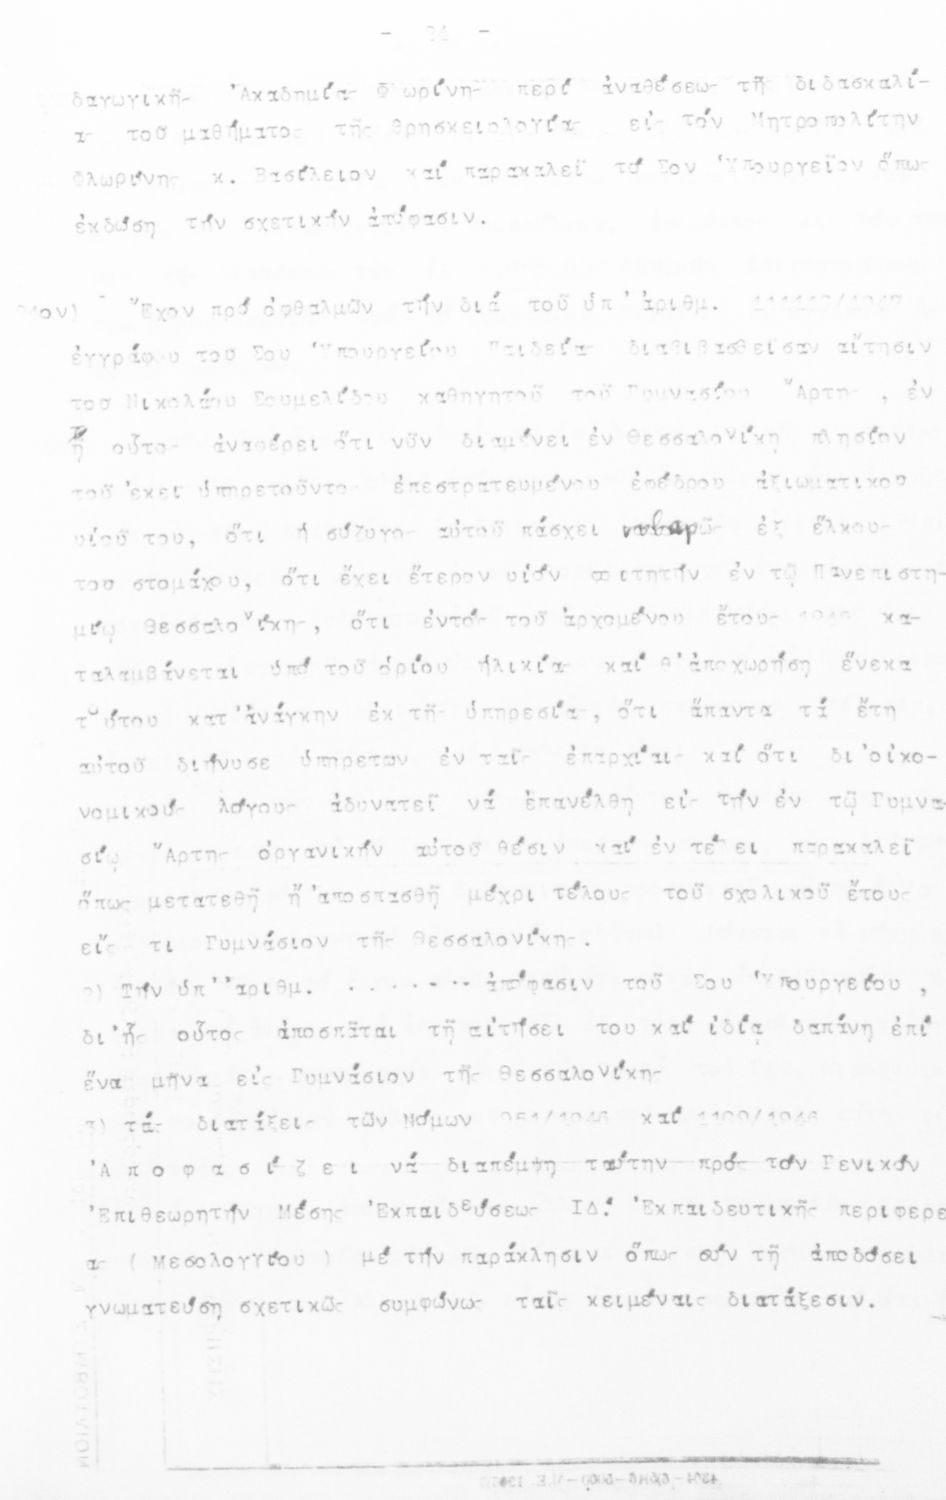 δαγωγικῆς Ἀκαδημίας Φλωρίνης περί ἀναθέσεως τῆς διδασκαλί-
ας τοῦ μαθήματος τῆς θρησκειολογίας εἰς τόν Μητροπολίτην
Φλωρίνης κ. Βασίλειον καί παρακαλεῖ τό Σον Ὑπουργεῖον ὅπως
ἐκδώση τήν σχετικήν ἀπόφασιν.
Ἔχον πρό ὀφθαλμῶν τήν διά τοῦ ὑπ' ἀριθμ. /1947
ἐγγράφου τοῦ Σου Ὑπουργείου Παιδείας διαβιβασθεῖσαν αἴτησιν
τοῦ Νικολάου Σουμελίδου καθηγητοῦ τοῦ Γυμνασίου Ἄρτης , ἐν
ᾗ οὗτος ἀναφέρει ὅτι νῦν διαμένει ἐν Θεσσαλονίκη πλησίον
τοῦ ἐκεῖ ὑπηρετοῦντος ἐπεστρατευμένου ἐφέδρου ἀξιωματικοῦ
υἱοῦ του, ὅτι ἡ σύζυγος αὐτοῦ πάσχει σοβαρῶς ἐξ ἕλκους
τοῦ στομάχου, ὅτι ἔχει ἕτερον υἱόν φοιτητήν ἐν τῷ Πανεπιστη-
μίῳ Θεσσαλονίκης, ὅτι ἐντός τοῦ ἀρχομένου ἔτους κα-
ταλαμβάνεται ὑπό τοῦ ὁρίου ἡλικίας καί θ'ἀποχωρήση ἕνεκα
τούτου κατ'ἀνάγκην ἐκ τῆς ὑπηρεσίας, ὅτι ἅπαντα τά ἔτη
αὐτοῦ διήνυσε ὑπηρετῶν ἐν ταῖς ἐπαρχίαις καί ὅτι δι'οἰκο-
νομικούς λόγους ἀδυνατεῖ νά ἐπανέλθη εἰς τήν ἐν τῷ Γυμνα-
σίῳ Ἄρτης ὀργανικήν αὐτοῦ θέσιν καί ἐν τέλει παρακαλεῖ
ὅπως μετατεθῆ ἤ ἀποσπασθῆ μέχρι τέλους τοῦ σχολικοῦ ἔτους
εἴς τι Γυμνάσιον τῆς Θεσσαλονίκης.
2) Τήν ὑπ' ἀριθμ. ........ ἀπόφασιν τοῦ Σου Ὑπουργείου ,
δι'ἧς οὗτος ἀποσπᾶται τῇ αἰτήσει του καί ἰδίᾳ δαπάνη ἐπί
ἕνα μῆνα εἰς Γυμνάσιον τῆς Θεσσαλονίκης
3) τάς διατάξεις τῶν Νόμων 951/1946 καί 1109/1946
Ἀ π ο φ α σ ί ζ ε ι νά διαπέμψη ταύτην πρός τόν Γενικόν
Ἐπιθεωρητήν Μέσης Ἐκπαιδεύσεως ΙΔ' Ἐκπαιδευτικῆς περιφερε
ας ( Μεσολογγίου ) μέ τήν παράκλησιν ὅπως σύν τῇ ἀποδόσει
γνωματεύση σχετικῶς συμφώνως ταῖς κειμέναις διατάξεσιν.